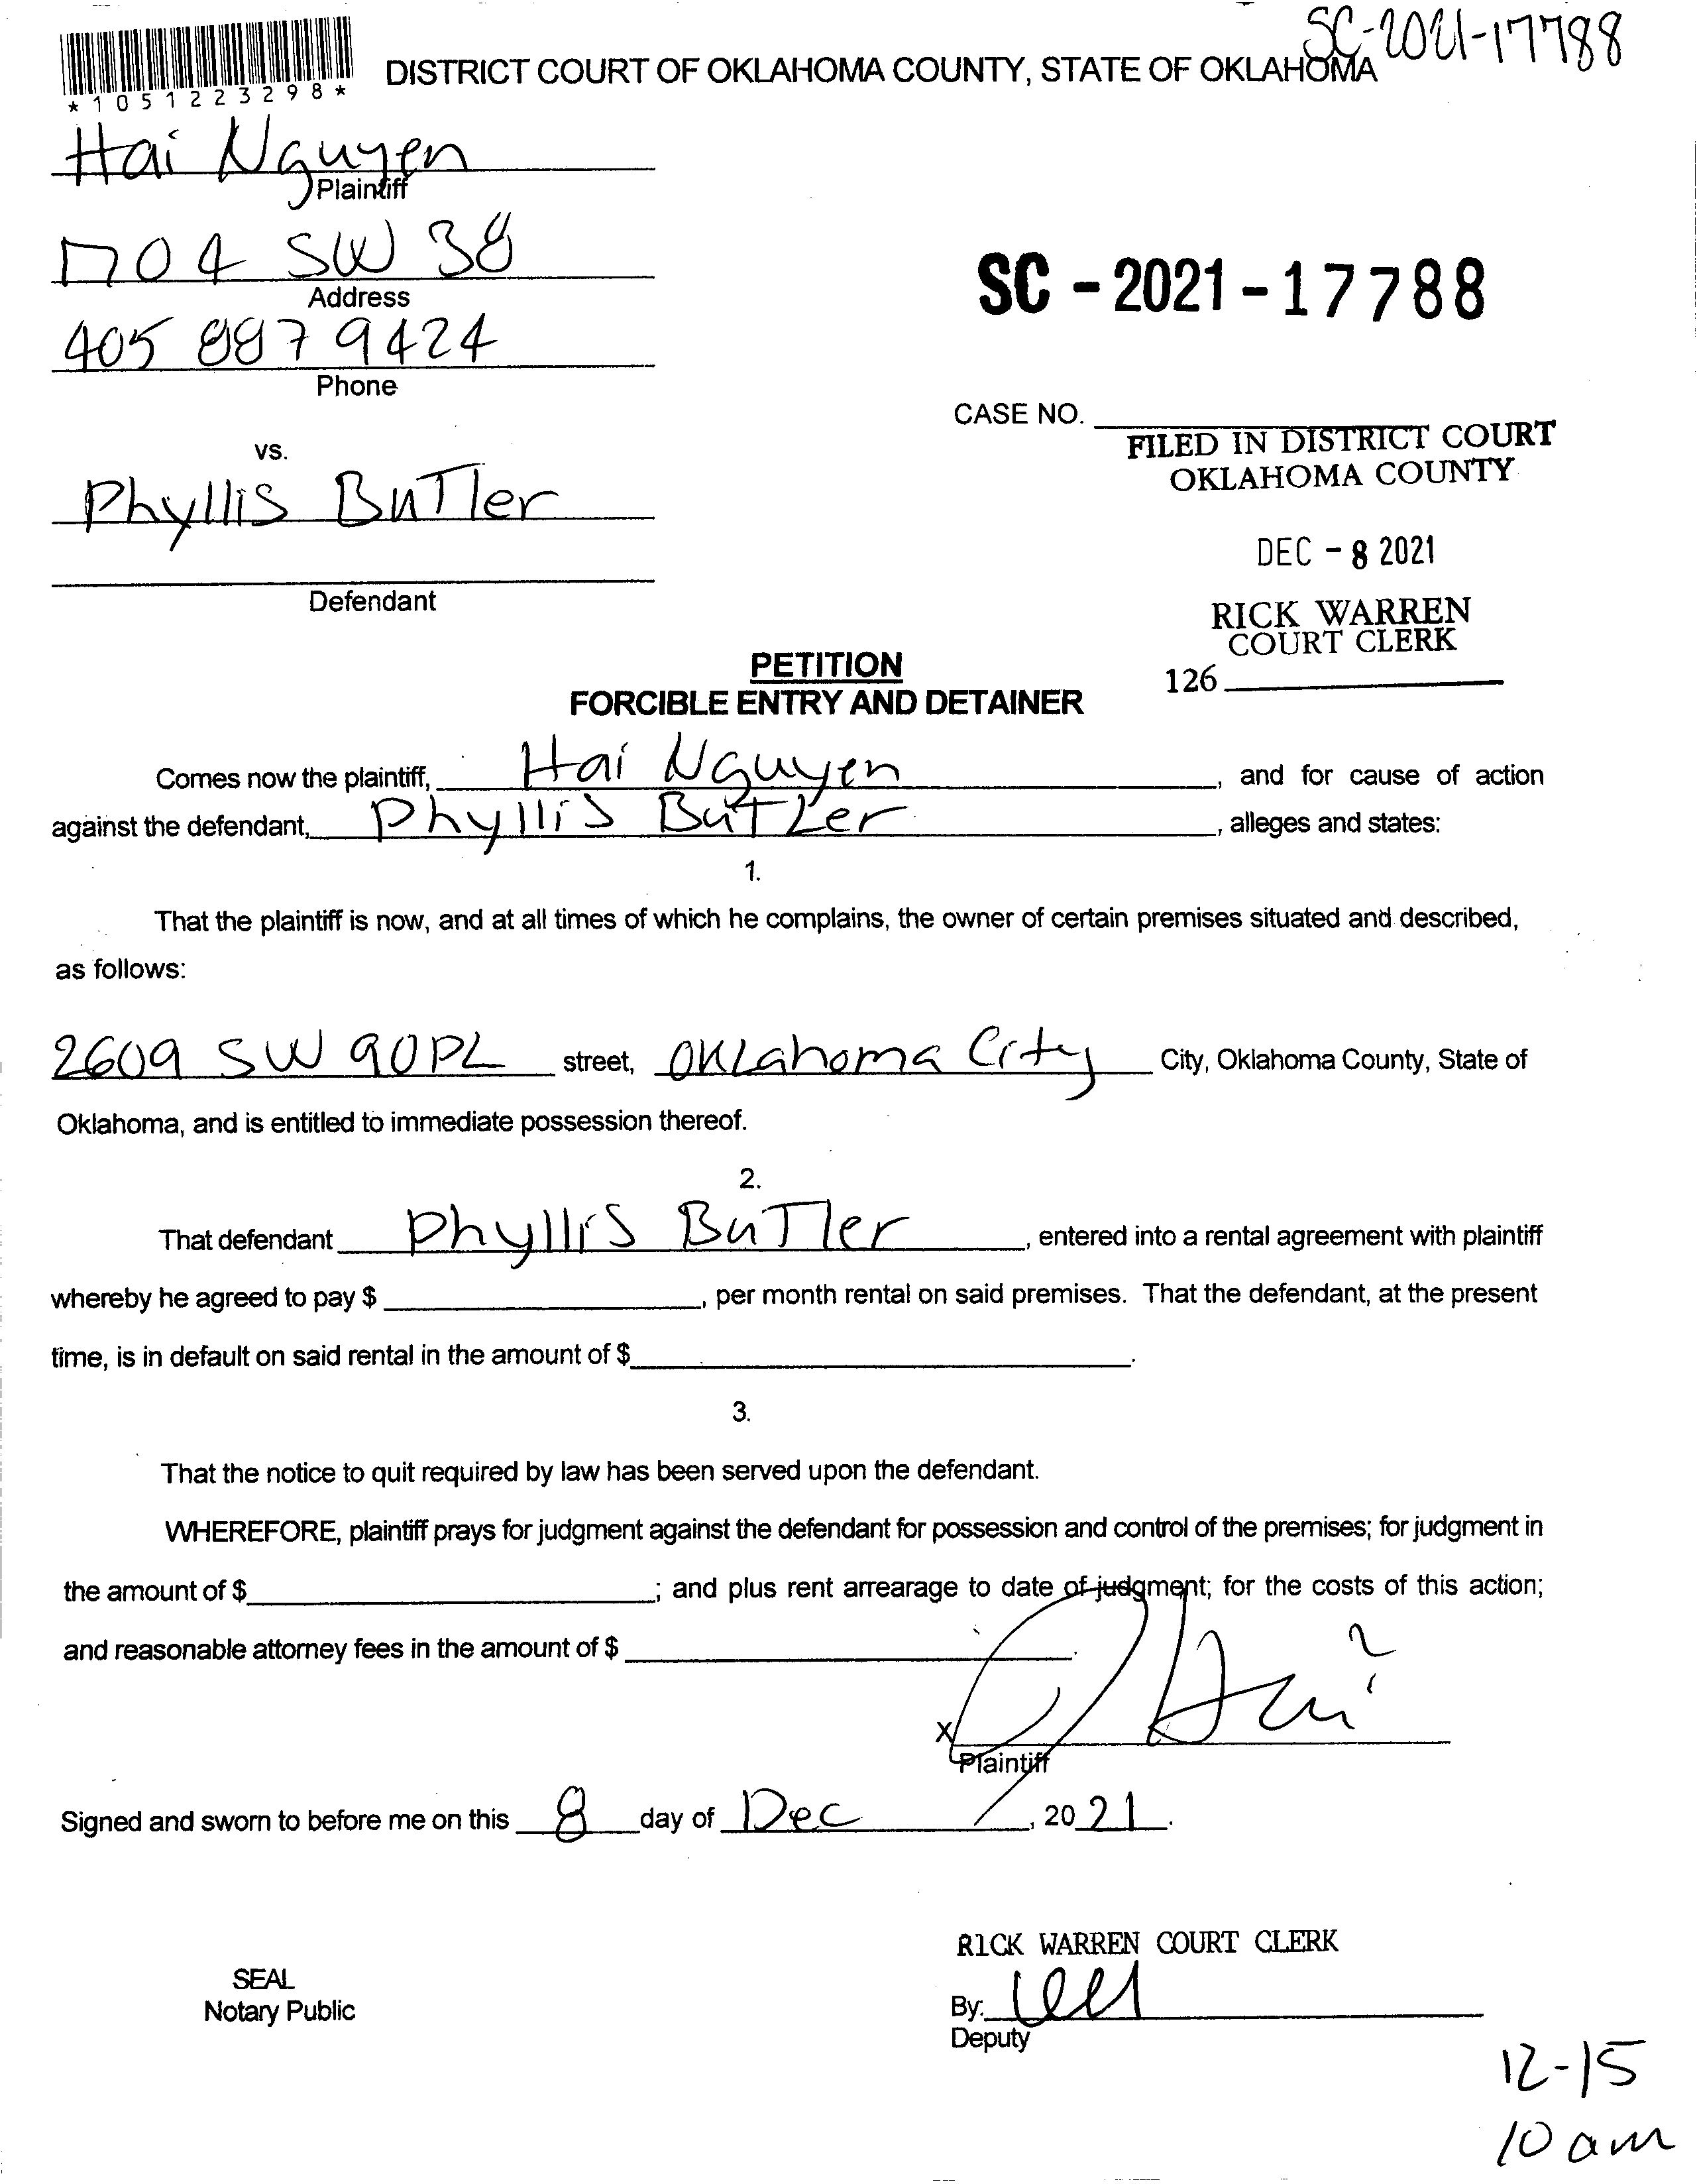 SC-2021-17788
*1051223298*
DISTRICT COURT OF OKLAHOMA COUNTY, STATE OF OKLAHOMA
Hai Nguyen
Plaintiff
1704 SW 38
Address
SC - 2021 - 17788
405 887 9424
Phone
CASE NO.
FILED IN DISTRICT COURT
OKLAHOMA COUNTY
vs.
Phyllis Butler
DEC - 8 2021
Defendant
RICK WARREN
COURT CLERK
126
PETITION
FORCIBLE ENTRY AND DETAINER
Comes now the plaintiff, Hai Nguyen, and for cause of action
against the defendant, Phyllis Butler, alleges and states:
1.
That the plaintiff is now, and at all times of which he complains, the owner of certain premises situated and described,
as follows:
2609 SW 90PL street, Oklahoma City City, Oklahoma County, State of
Oklahoma, and is entitled to immediate possession thereof.
2.
That defendant Phyllis Butler, entered into a rental agreement with plaintiff
whereby he agreed to pay $ , per month rental on said premises. That the defendant, at the present
time, is in default on said rental in the amount of $ .
3.
That the notice to quit required by law has been served upon the defendant.
WHEREFORE, plaintiff prays for judgment against the defendant for possession and control of the premises; for judgment in
the amount of $ ; and plus rent arrearage to date of judgment; for the costs of this action;
and reasonable attorney fees in the amount of $ .
X Hai
Plaintiff
Signed and sworn to before me on this 8 day of Dec, 2021.
RICK WARREN COURT CLERK
SEAL
Notary Public
By:
Deputy
12-15
10 am